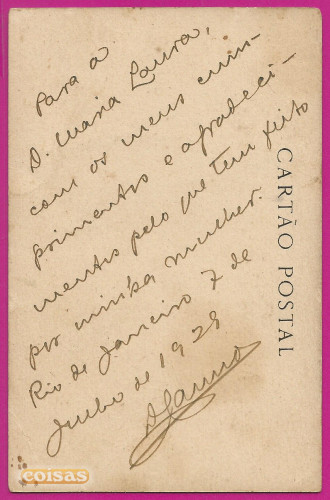 Para a
D. Maria Laura,
com os meus cum-
primentos e agradeci-
mentos pelo que tem feito
por minha mulher.
Rio de Janeiro 7 de
de 1929
CARTÃO POSTAL
coisas